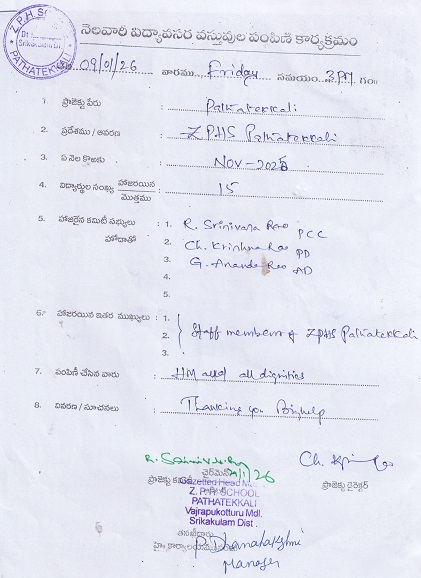 Z.P.H.S
Srikakulam Dt
PATHATEKKALI
నెలవారి విద్యావసర వస్తువుల పంపిణీ కార్యక్రమం
09/01/26 వారము Friday సమయం 3PM గం॥
1 ప్రాజెక్టు పేరు : Pathatekkali
2. ప్రదేశము / ఆవరణ : ZPHS Pathatekkali
3. ఏ నెల కొఱకు : NOV-2025
4. విద్యార్థుల సంఖ్య హాజరయిన / మొత్తము : 15
5. హాజరైన కమిటీ సభ్యులు : 1. R. Srinivasa Rao PCC
హోదాతో 2. Ch. Krishna Rao PD
3. G. Ananda Rao AD
4.
5.
6. హాజరయిన ఇతర ముఖ్యులు : 1.
2. Staff members of ZPHS Pathatekkali
3.
7. పంపిణీ చేసిన వారు : HM and all dignities
8. వివరణ / సూచనలు : Thanking you
చైర్‌మెన్ 9/1/26
ప్రాజెక్టు కమిటీ
Ch. Krishna Rao
ప్రాజెక్టు డైరెక్టర్
Gazetted Head M
Z. P. H SCHOOL
PATHATEKKALI
Vajrapukotturu Mdl,
Srikakulam Dist.
P. Dhanalakshmi
Manager